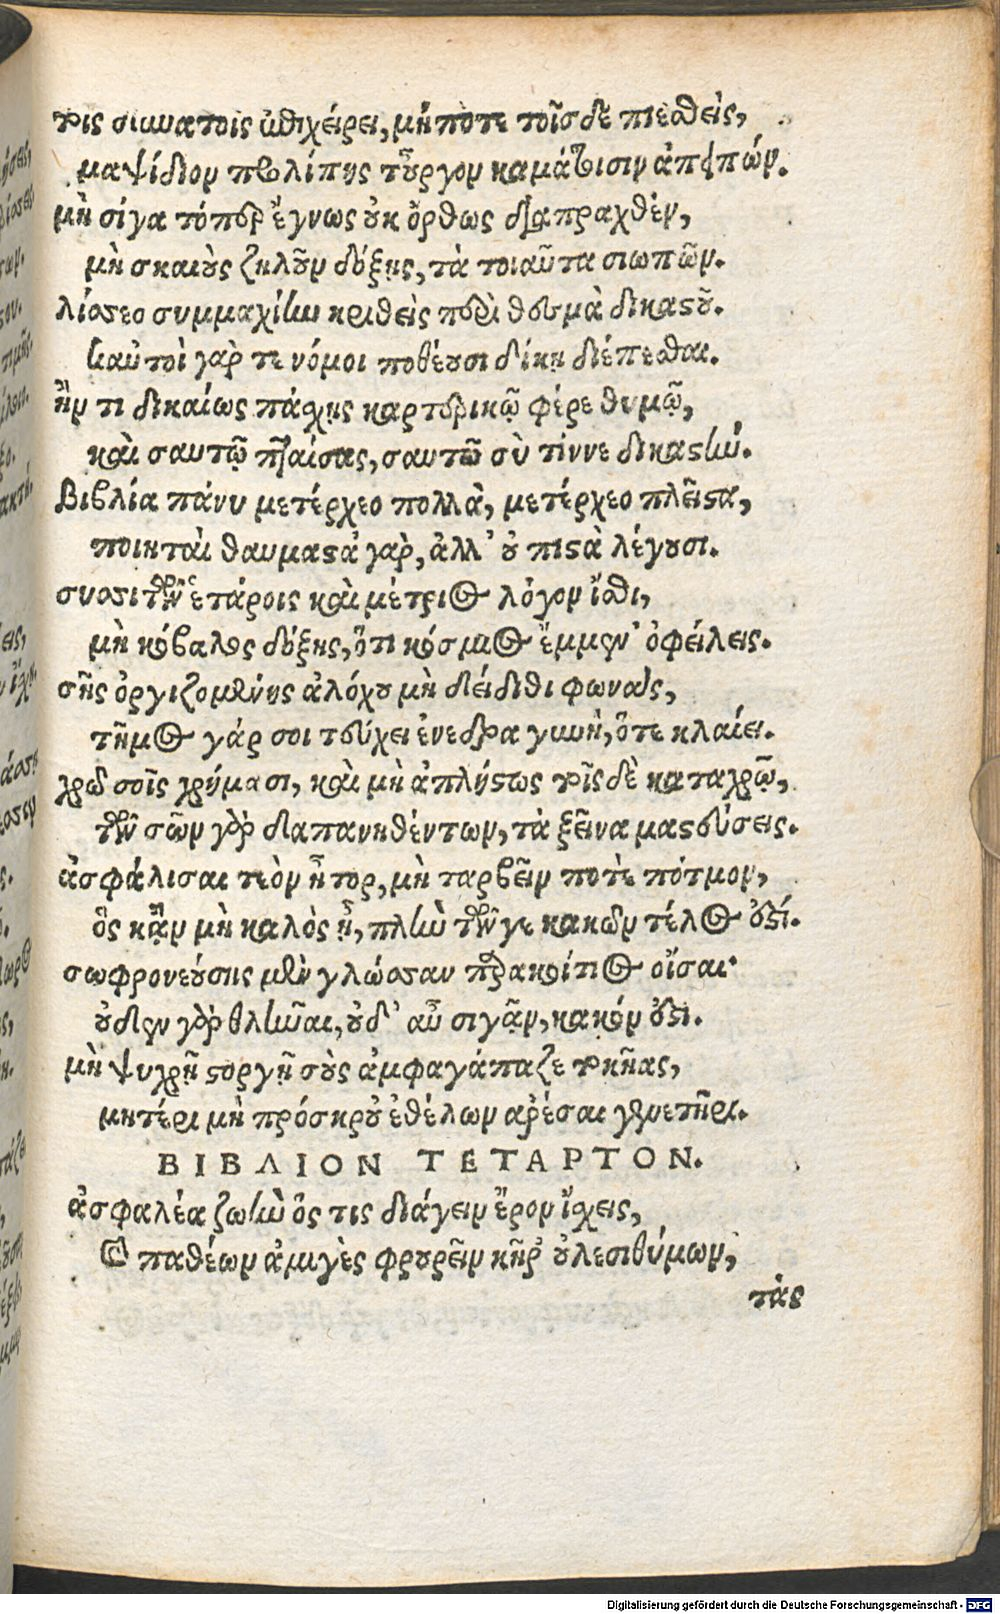 τοῖς δυνατοῖς ἐπιχείρει, μήποτε τοῖσδε πιεσθεὶς,
μαψίδιον προλίπῃς τοὖργον καμάτοισιν ἀπειπών.
μὴ σίγα τόπερ ἔγνως οὐκ ὄρθως διαπραχθὲν,
μὴ σκαιοὺς ζηλοῦν δόξῃς, τὰ τοιαῦτα σιωπῶν.
λίσσεο συμμαχίην κριθεὶς περὶ θεσμὰ δικαστοῦ.
καὐτοὶ γάρ τε νόμοι ποθέουσι δίκῃ διέπεσθαι.
ἢν τι δικαίως πάσχῃς καρτερικῷ φέρε θυμῷ,
καὶ σαυτῷ πταίσας, σαυτῶ σὺ τίννε δικαστήν.
Βιβλία πάνυ μετέρχεο πολλὰ, μετέρχεο πλεῖστα,
ποιηταὶ θαυμαστὰ γὰρ, ἀλλ' οὐ πιστὰ λέγουσι.
συσσιτῶν ἑτάροις καὶ μέτριος λόγον ἴσθι,
μὴ κόβαλος δόξῃς, ὅτι κόσμιος ἔμμεν' ὀφείλεις.
σῆς ὀργιζομένης ἀλόχου μὴ δείδιθι φωνὰς,
τῆμος γάρ σοι τεύχει ἐνεδρα γυνὴ, ὅτε κλαίει.
χρῶ σοῖς χρήμασι, καὶ μὴ ἀπλήστως τοῖς δὲ καταχρῶ,
τῶν σῶν γὰρ δαπανηθέντων, τὰ ξεῖνα μαστεύσεις.
ἀσφάλισαι τεὸν ἦτορ, μὴ ταρβεῖν ποτὲ πότμον,
ὃς κἂν μὴ καλὸς ᾖ, πλὴν τῶν γε κακῶν τέλος ἐστί.
σωφρονεύσης μὲν γλώσσαν παρακοίτιος οἴσαι·
οὐδὲν γὰρ βλῆναι, οὐδ' αὖ σιγᾷν, κακόν ἐστι.
μὴ ψυχρῇ στοργῇ σοὺς ἀμφαγάπαζε τοκῆας,
μητέρι μὴ πρόσκρου ἐθέλων ἀρέσαι γενετῆρι.
ΒΙΒΛΙΟΝ ΤΕΤΑΡΤΟΝ.
ἀσφαλέα ζωὴν ὅς τις διάγειν ἔρον ἴσχεις,
παθέων ἀμιγὲς φρουρεῖν κῆρ οὐλεσιθύμων,
τάς
Digitalisierung gefördert durch die Deutsche Forschungsgemeinschaft - DFG